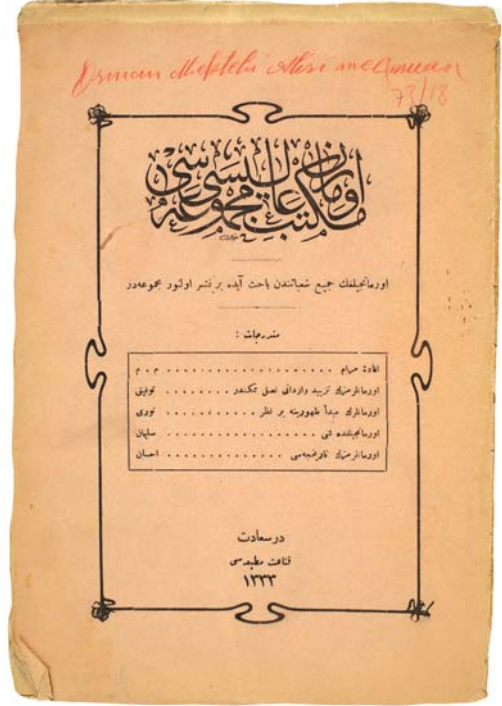 Orman Mektebi Âlisi mecmuası
73/18
اورمان
مكتب عاليسی
مجموعه سی
اورمانجیلغك جمیع شعباتندن باحث آیده بر نشر اولنور مجموعه‌در
مندرجات :
افاده مرام . . . . . . . . . . . . . . . . . . . . م . م
اورمانلرمزك تزیید وارداتی نصل ممكندر . . . . . . . . توفیق
اورمانلرك مبدأ ظهورینه بر نظر . . . . . . . . . نوری
اورمانجیلقده . . . . . . . . . . . . . . . . . سلیمان
اورمانلرمزك . . . . . . . . . . . . . احسان
درسعادت
قناعت مطبعه سی
١٣٣٣